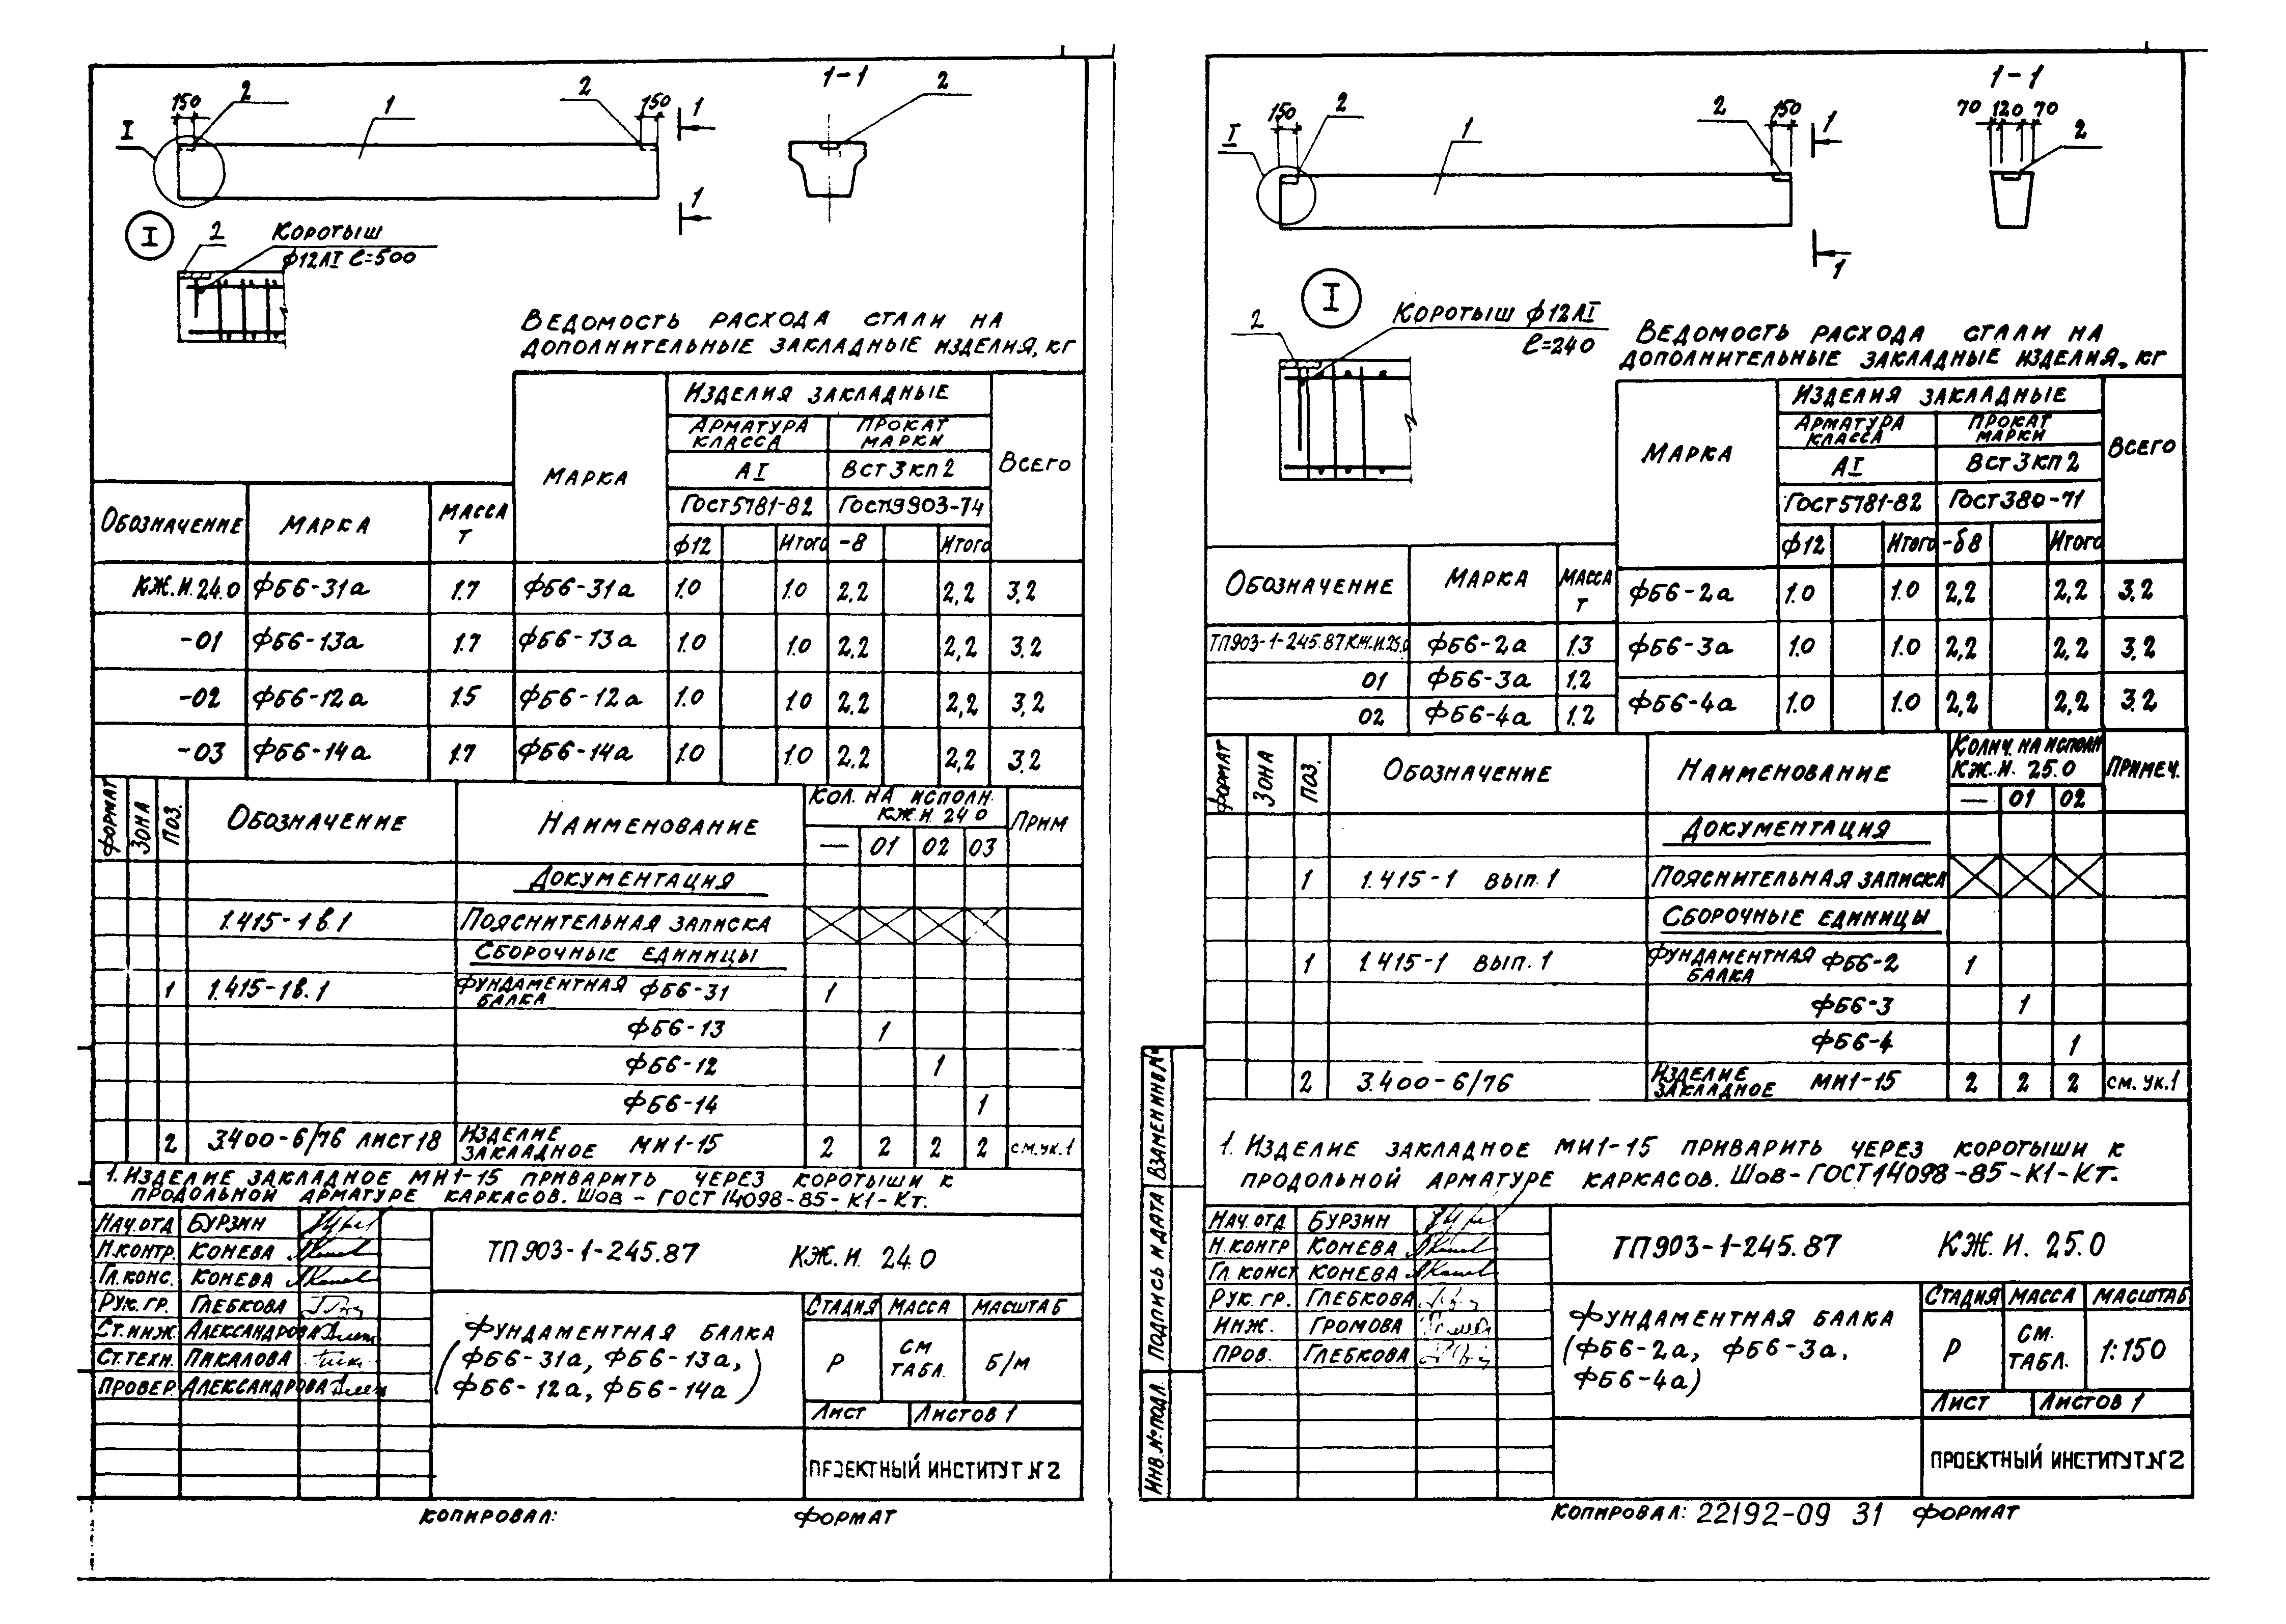 1-1
2
150
2
1
2
150
1
I
1
I
2
Коротыш
ф12АI ℓ=500
Ведомость расхода стали на
дополнительные закладные изделия, кг
Марка
Изделия закладные
Всего
Арматура класса
Прокат марки
АI
Вст3кп2
Гост5781-82
Гост19903-74
ф12
Итого
-8
Итого
Обозначение
Марка
Масса т
КЖ.И.24.0 ФБ6-31а 1.7 ФБ6-31а 1.0 1.0 2,2 2,2 3,2
-01 ФБ6-13а 1.7 ФБ6-13а 1.0 1.0 2,2 2,2 3,2
-02 ФБ6-12а 1.5 ФБ6-12а 1.0 1.0 2.2 2,2 3,2
-03 ФБ6-14а 1.7 ФБ6-14а 1.0 1.0 2,2 2,2 3,2
Формат
Зона
Поз.
Обозначение
Наименование
Кол. на исполн.
КЖ.И. 24 0
Прим
— 01 02 03
Документация
1.415-1 в.1 Пояснительная записка
Сборочные единицы
1 1.415-1 в.1 Фундаментная балка ФБ6-31 1
ФБ6-13 1
ФБ6-12 1
ФБ6-14 1
2 3.400-6/76 лист 18 Изделие закладное МИ1-15 2 2 2 2 см.ук.1
1. Изделие закладное МИ1-15 приварить через коротыши к
продольной арматуре каркасов. Шов - ГОСТ 14098-85-К1-Кт.
Нач.отд Бурзин
Н.контр. Конева
Гл.конс. Конева
Рук. гр. Глебкова
Ст.инж. Александрова
Ст.техн. Пикалова
Провер. Александрова
ТП 903-1-245.87 КЖ.И. 24.0
Фундаментная балка
(ФБ6-31а, ФБ6-13а,
ФБ6-12а, ФБ6-14а)
Стадия Масса Масштаб
Р см табл. Б/м
Лист Листов 1
Проектный институт №2
Копировал: Формат
1-1
70 120 70
2
150
2
1
2
150
1
I
1
I
2
Коротыш ф12АI
ℓ=240
Ведомость расхода стали на
дополнительные закладные изделия, кг
Марка
Изделия закладные
Всего
Арматура класса
Прокат марки
АI
Вст3кп2
Гост5781-82
Гост380-71
ф12
Итого
-δ8
Итого
ФБ6-2а 1.0 1.0 2,2 2,2 3,2
ФБ6-3а 1.0 1.0 2,2 2,2 3,2
ФБ6-4а 1.0 1.0 2,2 2,2 3,2
Обозначение
Марка
Масса т
ТП903-1-245.87 КЖ.И.25.0 ФБ6-2а 1.3
01 ФБ6-3а 1.2
02 ФБ6-4а 1.2
Формат
Зона
Поз.
Обозначение
Наименование
Колич. на исполн
КЖ.И. 25.0
Примеч.
— 01 02
Документация
1 1.415-1 вып.1 Пояснительная записка
Сборочные единицы
1 1.415-1 вып.1 Фундаментная балка ФБ6-2 1
ФБ6-3 1
ФБ6-4 1
2 3.400-6/76 Изделие закладное МИ1-15 2 2 2 см.ук.1
1. Изделие закладное МИ1-15 приварить через коротыши к
продольной арматуре каркасов. Шов-ГОСТ14098-85-К1-Кт.
Взамен инв №
Подпись и дата
Инв.№ подл.
Нач.отд Бурзин
Н.контр Конева
Гл.конст Конева
Рук. гр. Глебкова
Инж. Громова
Пров. Глебкова
ТП903-1-245.87 КЖ.И. 25.0
Фундаментная балка
(ФБ6-2а, ФБ6-3а,
ФБ6-4а)
Стадия Масса Масштаб
Р см. табл. 1:150
Лист Листов 1
Проектный институт №2
Копировал: 22192-09 31 Формат